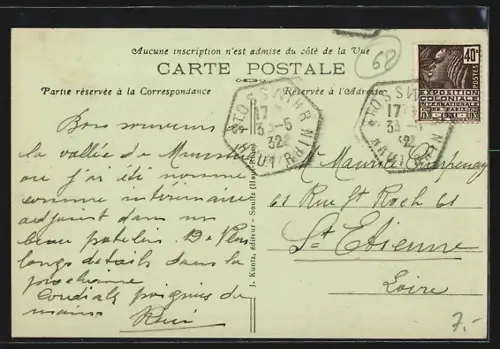 Aucune inscription n'est admise du côté de la Vue
CARTE POSTALE
Partie réservée à la Correspondance
Réservée à l'Adresse
68
40c
POSTES
EXPOSITION
COLONIALE
INTERNATIONALE
DE PARIS
1931
STOSSWIHR
17
5
32
HAUT RHIN
STOSSWIHR
17
32
HAUT RHIN
Bons souvenirs de
la vallée de Munster
où j'ai été nommé
comme intérimaire
adjoint dans un
beau patelin. De Plus
longs détails dans la
prochaine
Cordiale poignée de
mains
René
J. Kuntz, éditeur - Soultz
M Maurice
61 Rue St Roch 61
St Etienne
Loire
7.-